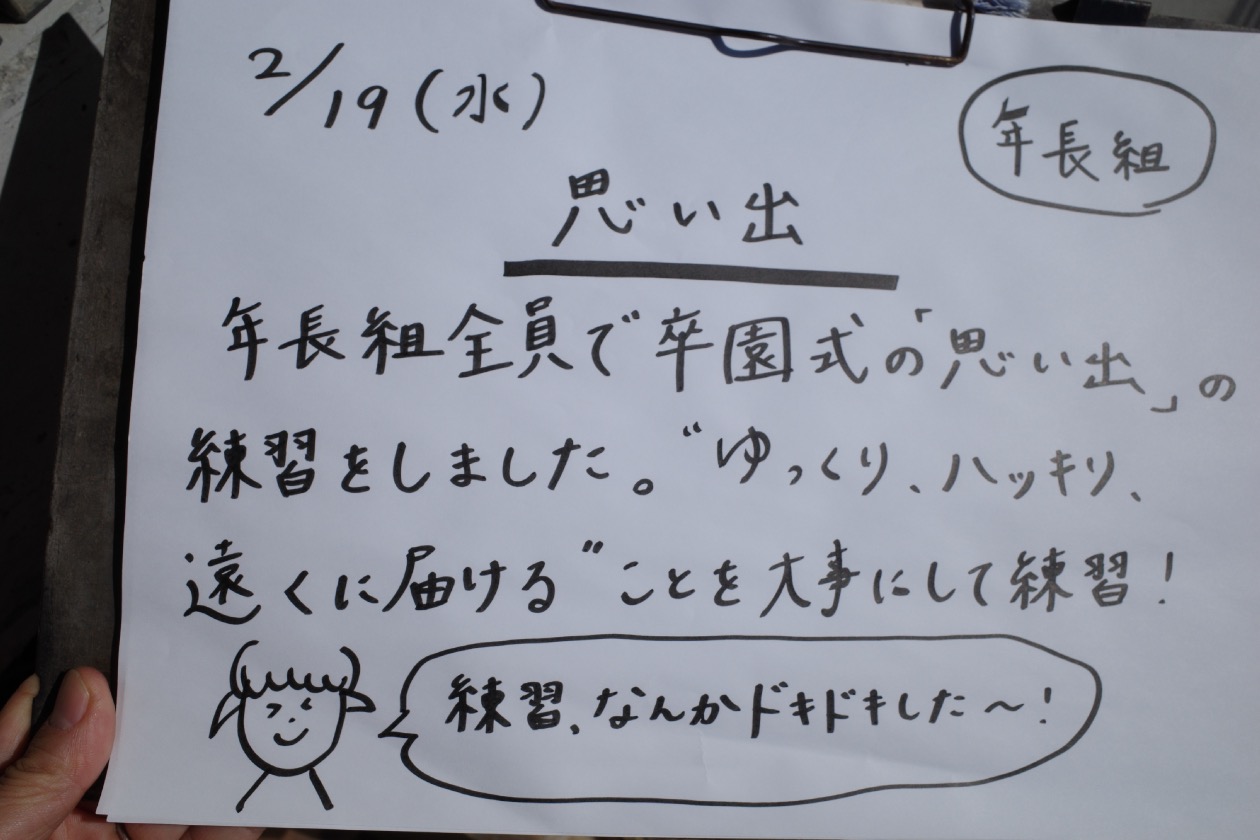 2/19(水)
年長組
思い出
年長組全員で卒園式の「思い出」の
練習をしました。“ゆっくり、ハッキリ、
遠くに届ける”ことを大事にして練習!
練習、なんかドキドキした〜!